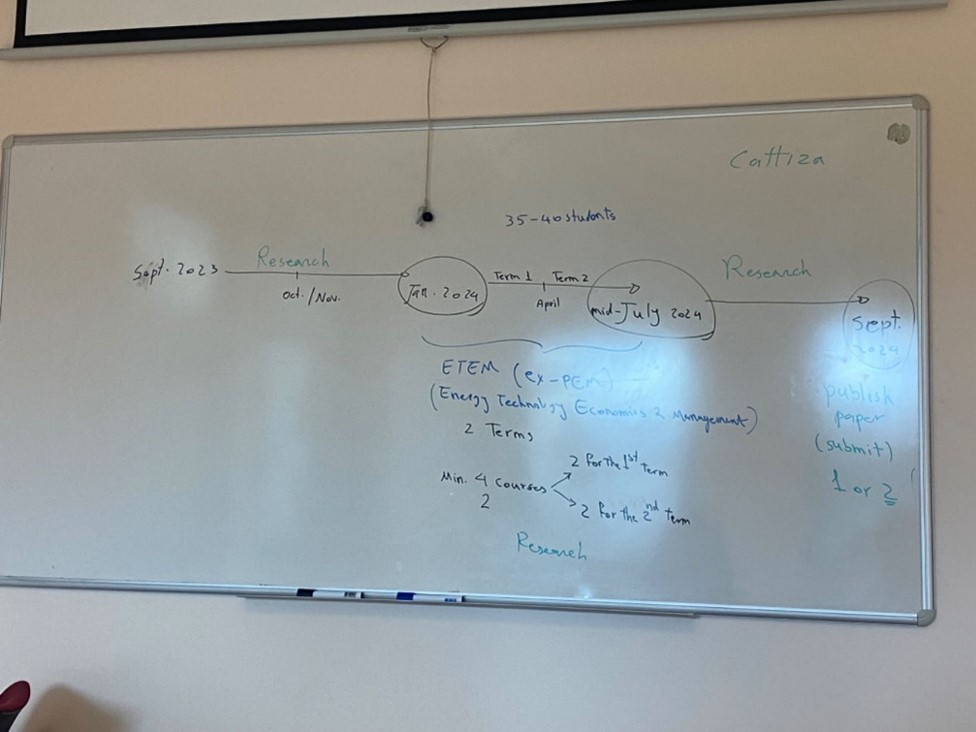 Cattiza
35-40 students
Sept. 2023
Research
Oct. / Nov.
Jan. 2024
Term 1
Term 2
April
mid-July 2024
Research
Sept.
2024
ETEM (ex-PEM)
(Energy Technology Economics & Management)
2 Terms
Min. 4 courses
2
2 for the 1st term
2 for the 2nd term
Research
publish
paper
(submit)
1 or 2